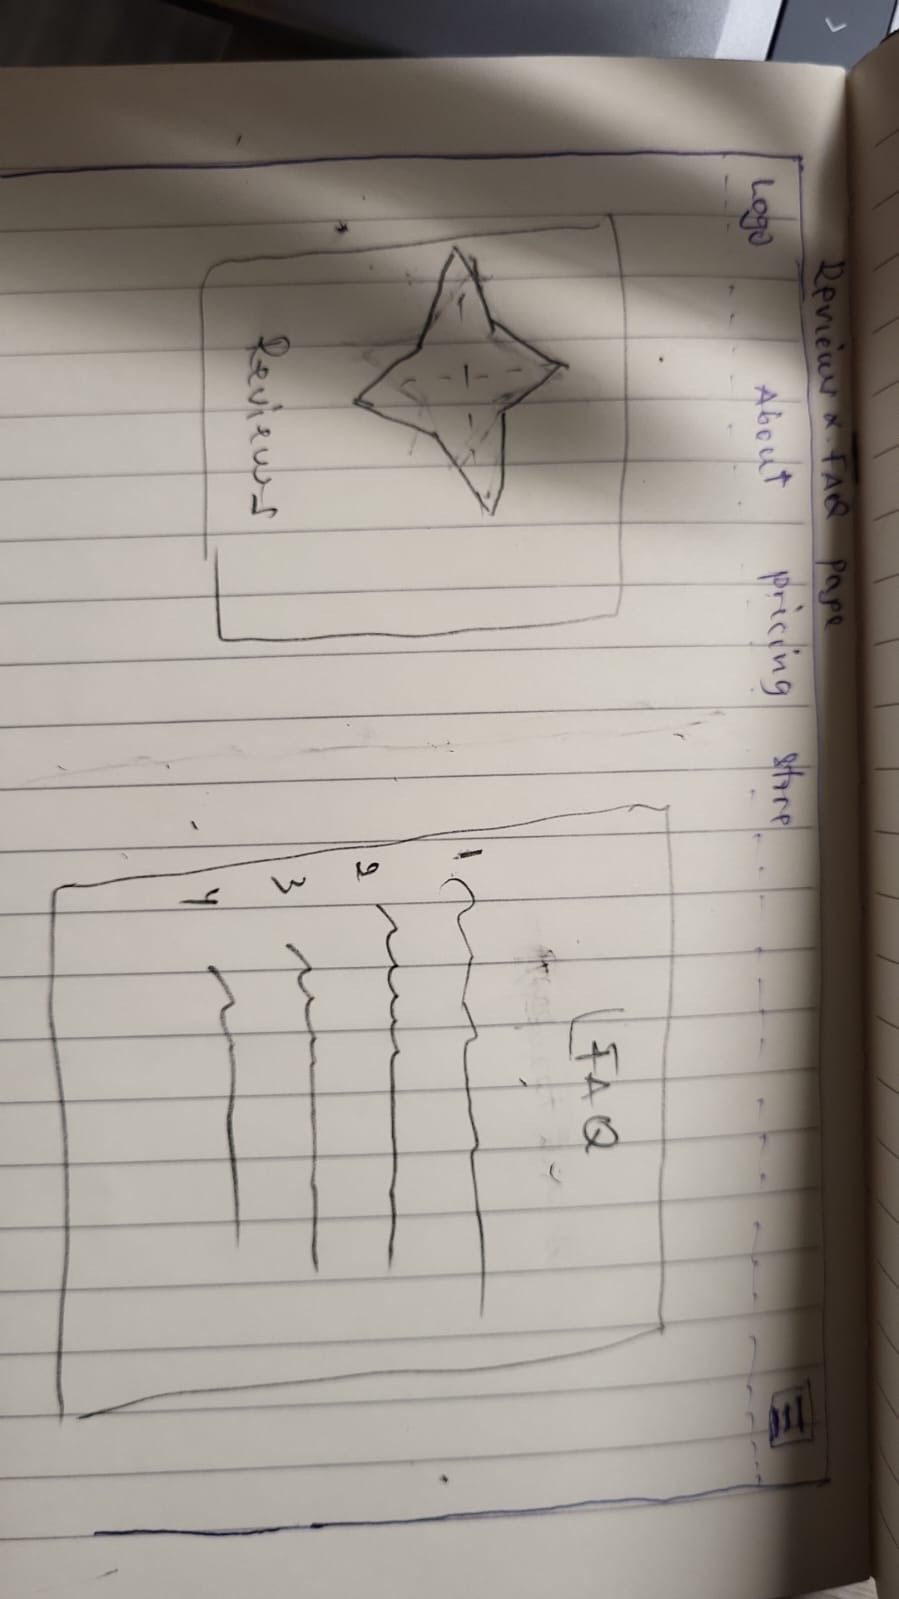 Reviews & FAQ page
Logo About pricing store
Reviews
FAQ
1
2
3
4